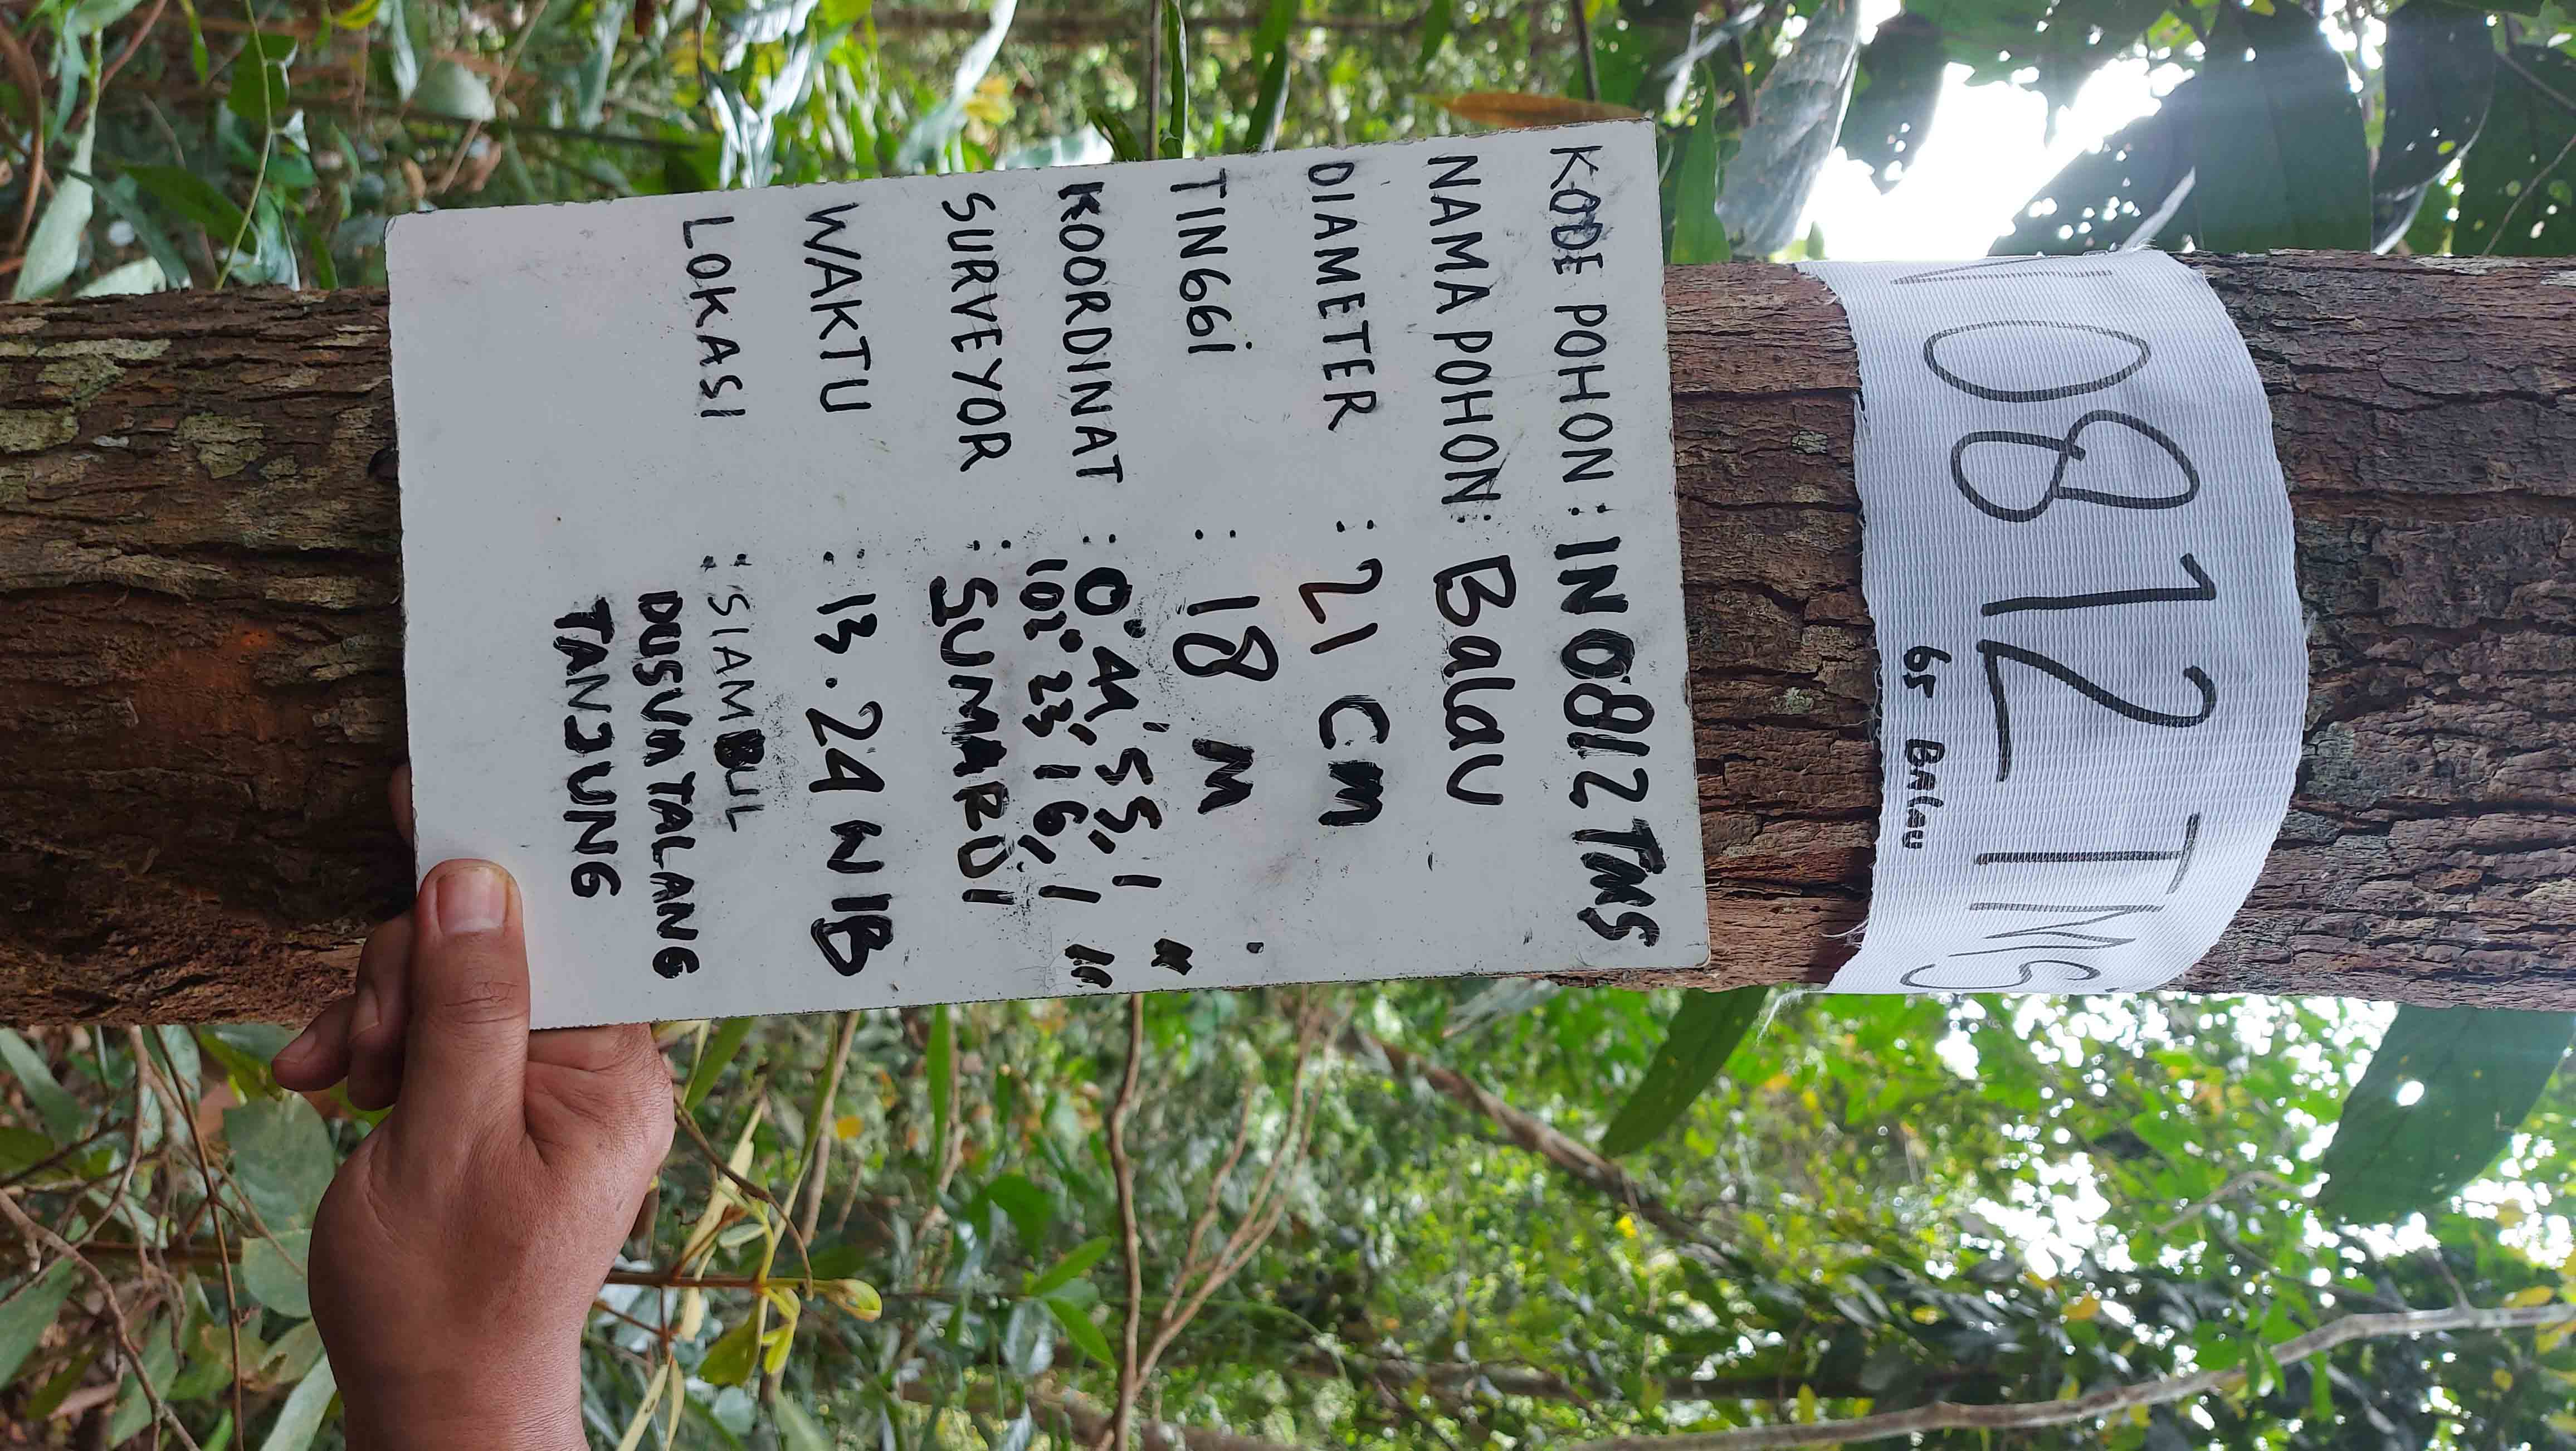 N0812TMS
65 BALAU
KODE POHON : IN0812TMS
NAMA POHON : Balau
DIAMETER : 21 CM
TINGGI : 18 M
KOORDINAT : 0° 44' 55,1 "
102° 23' 16,1 "
SURVEYOR : SUMARDI
WAKTU : 13.24 WIB
LOKASI : SIAMBUL
DUSUM TALANG
TANJUNG